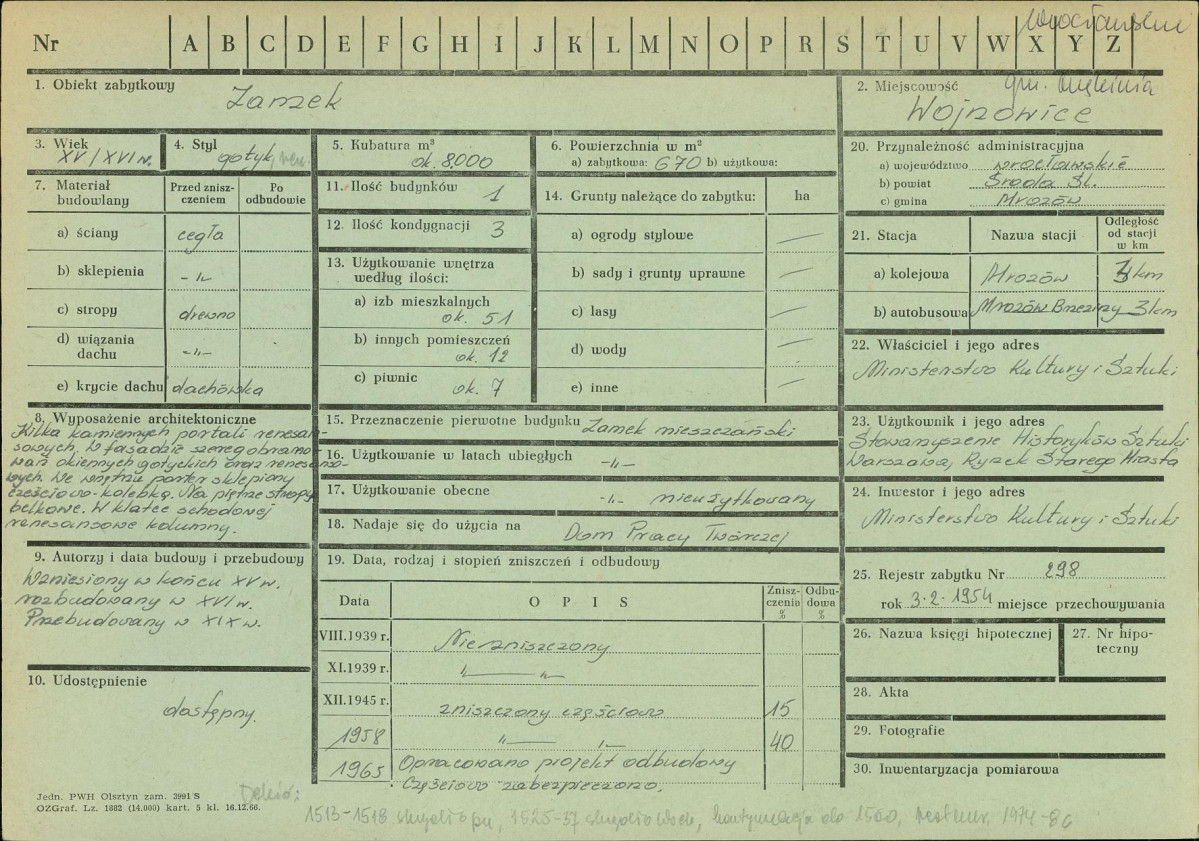 Nr A B C D E F G H I J K L M N O P R S T U V W X Y Z
Wrocławskie
1. Obiekt zabytkowy
Zamek
2. Miejscowość
gm. Miękinia
Wojnowice
3. Wiek
XV/XVI w.
4. Styl
gotyk, ren.
5. Kubatura m³
ok. 8000
6. Powierzchnia w m²
a) zabytkowa: 670 b) użytkowa:
7. Materiał budowlany
Przed zniszczeniem
Po odbudowie
a) ściany cegła
b) sklepienia -"-
c) stropy drewno
d) wiązania dachu -"-
e) krycie dachu dachówka
11. Ilość budynków 1
12. Ilość kondygnacji 3
13. Użytkowanie wnętrza
według ilości:
a) izb mieszkalnych
ok. 51
b) innych pomieszczeń
ok. 12
c) piwnic ok. 7
14. Grunty należące do zabytku: ha
a) ogrody stylowe —
b) sady i grunty uprawne —
c) lasy —
d) wody —
e) inne —
20. Przynależność administracyjna
a) województwo wrocławskie
b) powiat Środa Śl.
c) gmina Mrozów
21. Stacja
Nazwa stacji
Odległość od stacji w km
a) kolejowa Mrozów km
b) autobusowa Mrozów Brzeziny 3 km
22. Właściciel i jego adres
Ministerstwo Kultury i Sztuki
8. Wyposażenie architektoniczne
Kilka kamiennych portali renesan-
sowych. W fasadzie szereg obramo-
wań okiennych gotyckich oraz renesanso-
wych. We wnętrzu parter sklepiony
częściowo-kolebką. Na piętrze stropy
belkowe. W klatce schodowej
renesansowe kolumny.
15. Przeznaczenie pierwotne budynku Zamek mieszczański
16. Użytkowanie w latach ubiegłych -"-
17. Użytkowanie obecne -"- nieużytkowany
18. Nadaje się do użycia na Dom Pracy Twórczej
23. Użytkownik i jego adres
Stowarzyszenie Historyków Sztuki
Warszawa, Rynek Starego Miasta
24. Inwestor i jego adres
Ministerstwo Kultury i Sztuki
9. Autorzy i data budowy i przebudowy
Wzniesiony w końcu XV w.
rozbudowany w XVI w.
Przebudowany w XIX w.
10. Udostępnienie
dostępny.
19. Data, rodzaj i stopień zniszczeń i odbudowy
Data
OPIS
Zniszczenia %
Odbudowa %
VIII.1939 r. Niezniszczony
XI.1939 r. "—"
XII.1945 r. zniszczony częściowo 15
1958 "—" 40
1965 Opracowano projekt odbudowy
Częściowo zabezpieczono.
25. Rejestr zabytku Nr 298
rok 3.2.1954 miejsce przechowywania
26. Nazwa księgi hipotecznej
27. Nr hipoteczny
28. Akta
29. Fotografie
30. Inwentaryzacja pomiarowa
Jedn. PWH Olsztyn zam. 3991 S
OZGraf. Lz. 1882 (14.000) kart. 5 kl. 16.12.66.
Dehio:
1513-1518 skrzydło płn, 1525-37 skrzydło wsch, kontynuacja do 1560, restaur. 1974-86